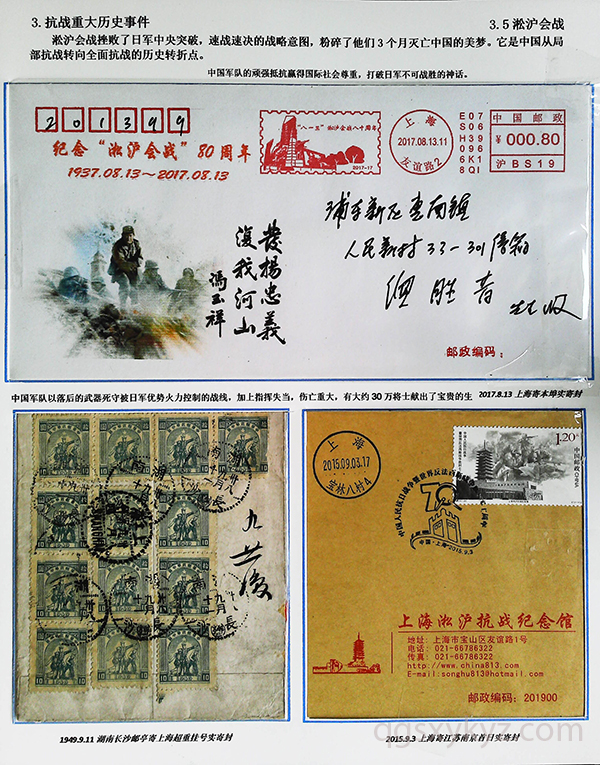 3. 抗战重大历史事件
3.5 淞沪会战
淞沪会战挫败了日军中央突破，速战速决的战略意图，粉碎了他们3个月灭亡中国的美梦。它是中国从局
部抗战转向全面抗战的历史转折点。
中国军队的顽强抵抗赢得国际社会尊重，打破日军不可战胜的神话。
201399
纪念“淞沪会战”80周年
1937.08.13～2017.08.13
“八一三”淞沪会战八十周年
2017-17
上海
2017.08.13.11
友谊路2
E 07
S 06
H 39
0 96
6 K1
8 QI
中国邮政
¥ 000.80
沪 BS19
發揚忠義
復我河山
馮玉祥
浦东新区
人民新村33-301
邮政编码：
中国军队以落后的武器死守被日军优势火力控制的战线，加上指挥失当，伤亡重大，有大约30万将士献出了宝贵的生
2017.8.13 上海寄本埠实寄封
湖南
長沙
上海
2015.09.03.17
宝林八村4
1.20元
中国邮政
CHINA
70
中国·上海 2015.9.3
上海淞沪抗战纪念馆
地址：上海市宝山区友谊路1号
电话：021-66786322
传真：021-66786322
http://www.china813.com
E-mail:songhu813@hotmail.com
邮政编码：201900
1949.9.11 湖南长沙邮亭寄上海超重挂号实寄封
2015.9.3 上海寄江苏南京首日实寄封
qgsxykyz.com